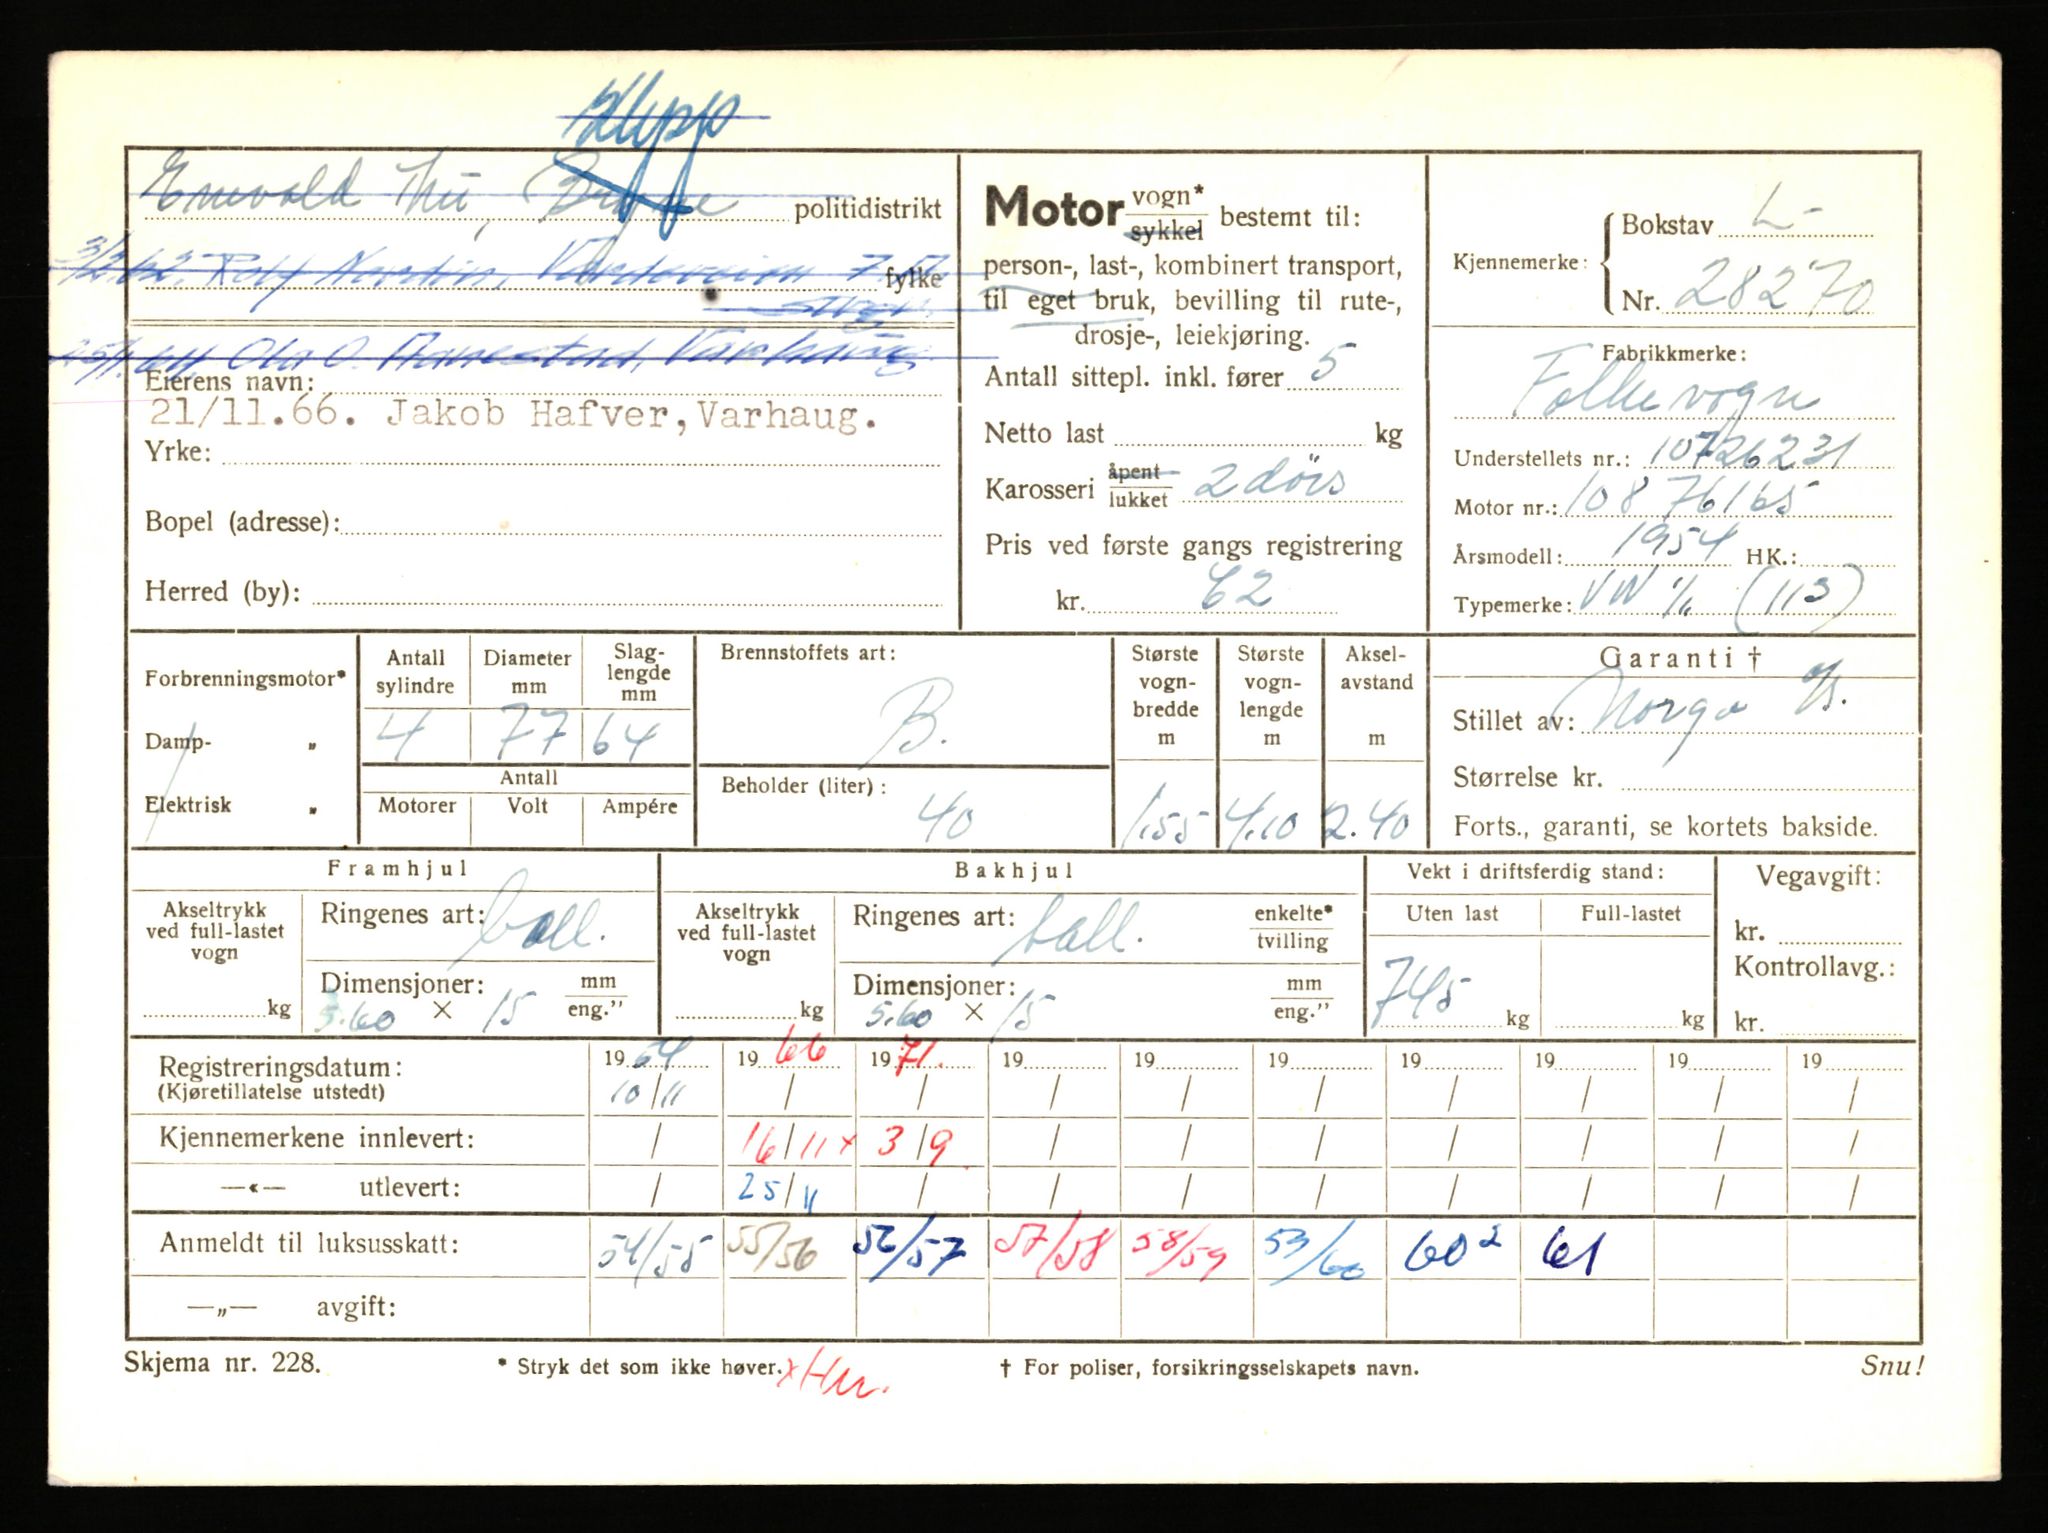 Klepp
Enevald Thu, Bryne politidistrikt
3/2.62. Rolf Nordin, fylke
25/1.64. Ola O. Aanestad, Varhaug
Eierens navn:
21/11.66. Jakob Hafver, Varhaug.
Yrke:
Bopel (adresse):
Herred (by):
Motor vogn* sykkel bestemt til:
person-, last-, kombinert transport,
til eget bruk, bevilling til rute-,
drosje-, leiekjøring.
Antall sittepl. inkl. fører 5
Netto last kg
Karosseri åpent lukket 2 dørs
Pris ved første gangs registrering
kr. 62
Kjennemerke: Bokstav L-
Nr. 28270
Fabrikkmerke:
Folkevogn
Understellets nr.: 10726231
Motor nr.: 10876165
Årsmodell: 1954 HK.:
Typemerke: VW 1/11 (113)
Forbrenningsmotor*
Damp- „
Elektrisk „
Antall sylindre Diameter mm Slag-lengde mm
4 77 64
Antall
Motorer Volt Ampére
Brennstoffets art:
B.
Beholder (liter):
40
Største vogn-bredde m Største vogn-lengde m Aksel-avstand m
1.55 4.10 2.40
Garanti †
Stillet av: Norga
Størrelse kr.
Forts., garanti, se kortets bakside.
Framhjul
Akseltrykk ved full-lastet vogn
kg
Ringenes art: ball.
Dimensjoner: mm
5.60 × 15 eng.”
Bakhjul
Akseltrykk ved full-lastet vogn
kg
Ringenes art: ball. enkelte* tvilling
Dimensjoner: mm
5.60 × 15 eng.”
Vekt i driftsferdig stand:
Uten last Full-lastet
745 kg kg
Vegavgift:
kr.
Kontrollavg.:
kr.
Registreringsdatum: 19 54 19 66 19 71. 19 19 19 19 19 19 19
(Kjøretillatelse utstedt) 10/11 / / / / / / / / /
Kjennemerkene innlevert: / 16/11 x 3/9 / / / / / / /
—«— utlevert: / 25/11 / / / / / / / /
Anmeldt til luksusskatt: 54/55 55/56 56/57 57/58 58/59 53/60 60² 61
—„— avgift:
Skjema nr. 228. * Stryk det som ikke høver. x † For poliser, forsikringsselskapets navn. Snu!